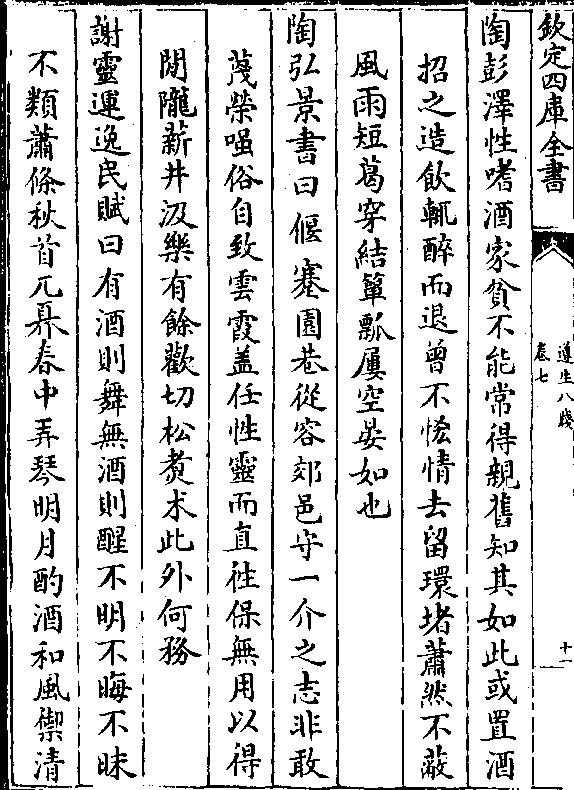 欽定四庫全書
遵生八牋
卷七
十一
陶彭澤性嗜酒家貧不能常得親舊知其如此或置酒
招之造飲輒醉而退曾不恡情去留環堵蕭然不蔽
風雨短葛穿結簞瓢屢空晏如也
陶弘景書曰偃蹇園巷從容郊邑守一介之志非敢
蔑榮嗤俗自致雲霞盖任性靈而直徃保無用以得
閒隴薪井汲樂有餘歡切松煑术此外何務
謝靈運逸民賦曰有酒則舞無酒則醒不明不晦不昧
不類蕭條秋首兀㒹春中弄琴明月酌酒和風禦清